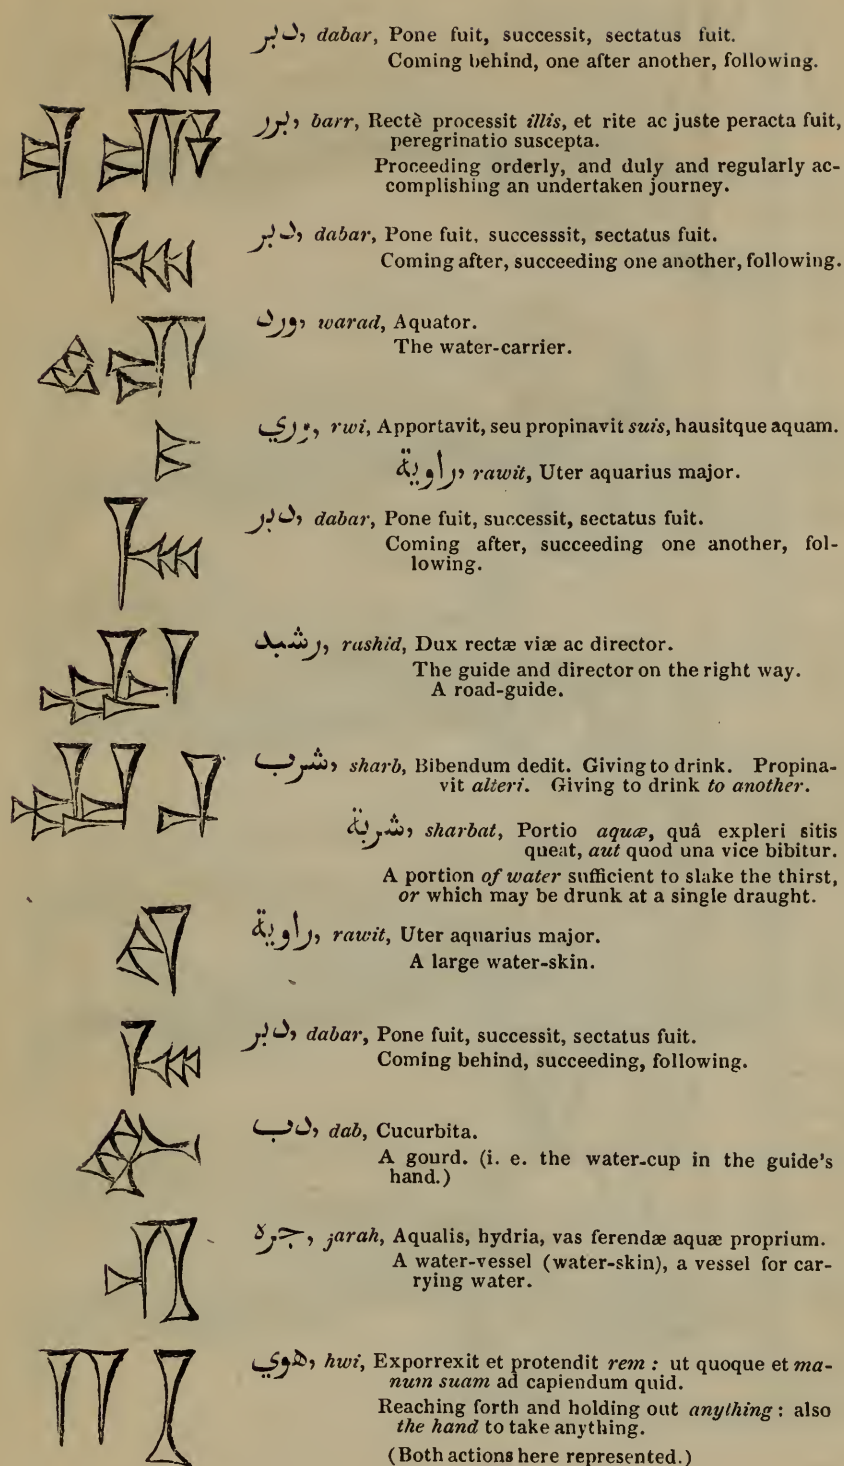 دبر, dabar, Pone fuit, successit, sectatus fuit.
Coming behind, one after another, following.
برر, barr, Rectè processit illis, et rite ac juste peracta fuit,
peregrinatio suscepta.
Proceeding orderly, and duly and regularly ac-
complishing an undertaken journey.
دبر, dabar, Pone fuit, successsit, sectatus fuit.
Coming after, succeeding one another, following.
ورد, warad, Aquator.
The water-carrier.
روي, rwi, Apportavit, seu propinavit suis, hausitque aquam.
راوية, rawit, Uter aquarius major.
دبر, dabar, Pone fuit, successit, sectatus fuit.
Coming after, succeeding one another, fol-
lowing.
رشيد, rashid, Dux rectæ viæ ac director.
The guide and director on the right way.
A road-guide.
شرب, sharb, Bibendum dedit. Giving to drink. Propina-
vit alteri. Giving to drink to another.
شربة, sharbat, Portio aquæ, quâ expleri sitis
queat, aut quod una vice bibitur.
A portion of water sufficient to slake the thirst,
or which may be drunk at a single draught.
راوية, rawit, Uter aquarius major.
A large water-skin.
دبر, dabar, Pone fuit, successit, sectatus fuit.
Coming behind, succeeding, following.
دب, dab, Cucurbita.
A gourd. (i. e. the water-cup in the guide's
hand.)
جره, jarah, Aqualis, hydria, vas ferendæ aquæ proprium.
A water-vessel (water-skin), a vessel for car-
rying water.
هوي, hwi, Exporrexit et protendit rem : ut quoque et ma-
num suam ad capiendum quid.
Reaching forth and holding out anything : also
the hand to take anything.
(Both actions here represented.)